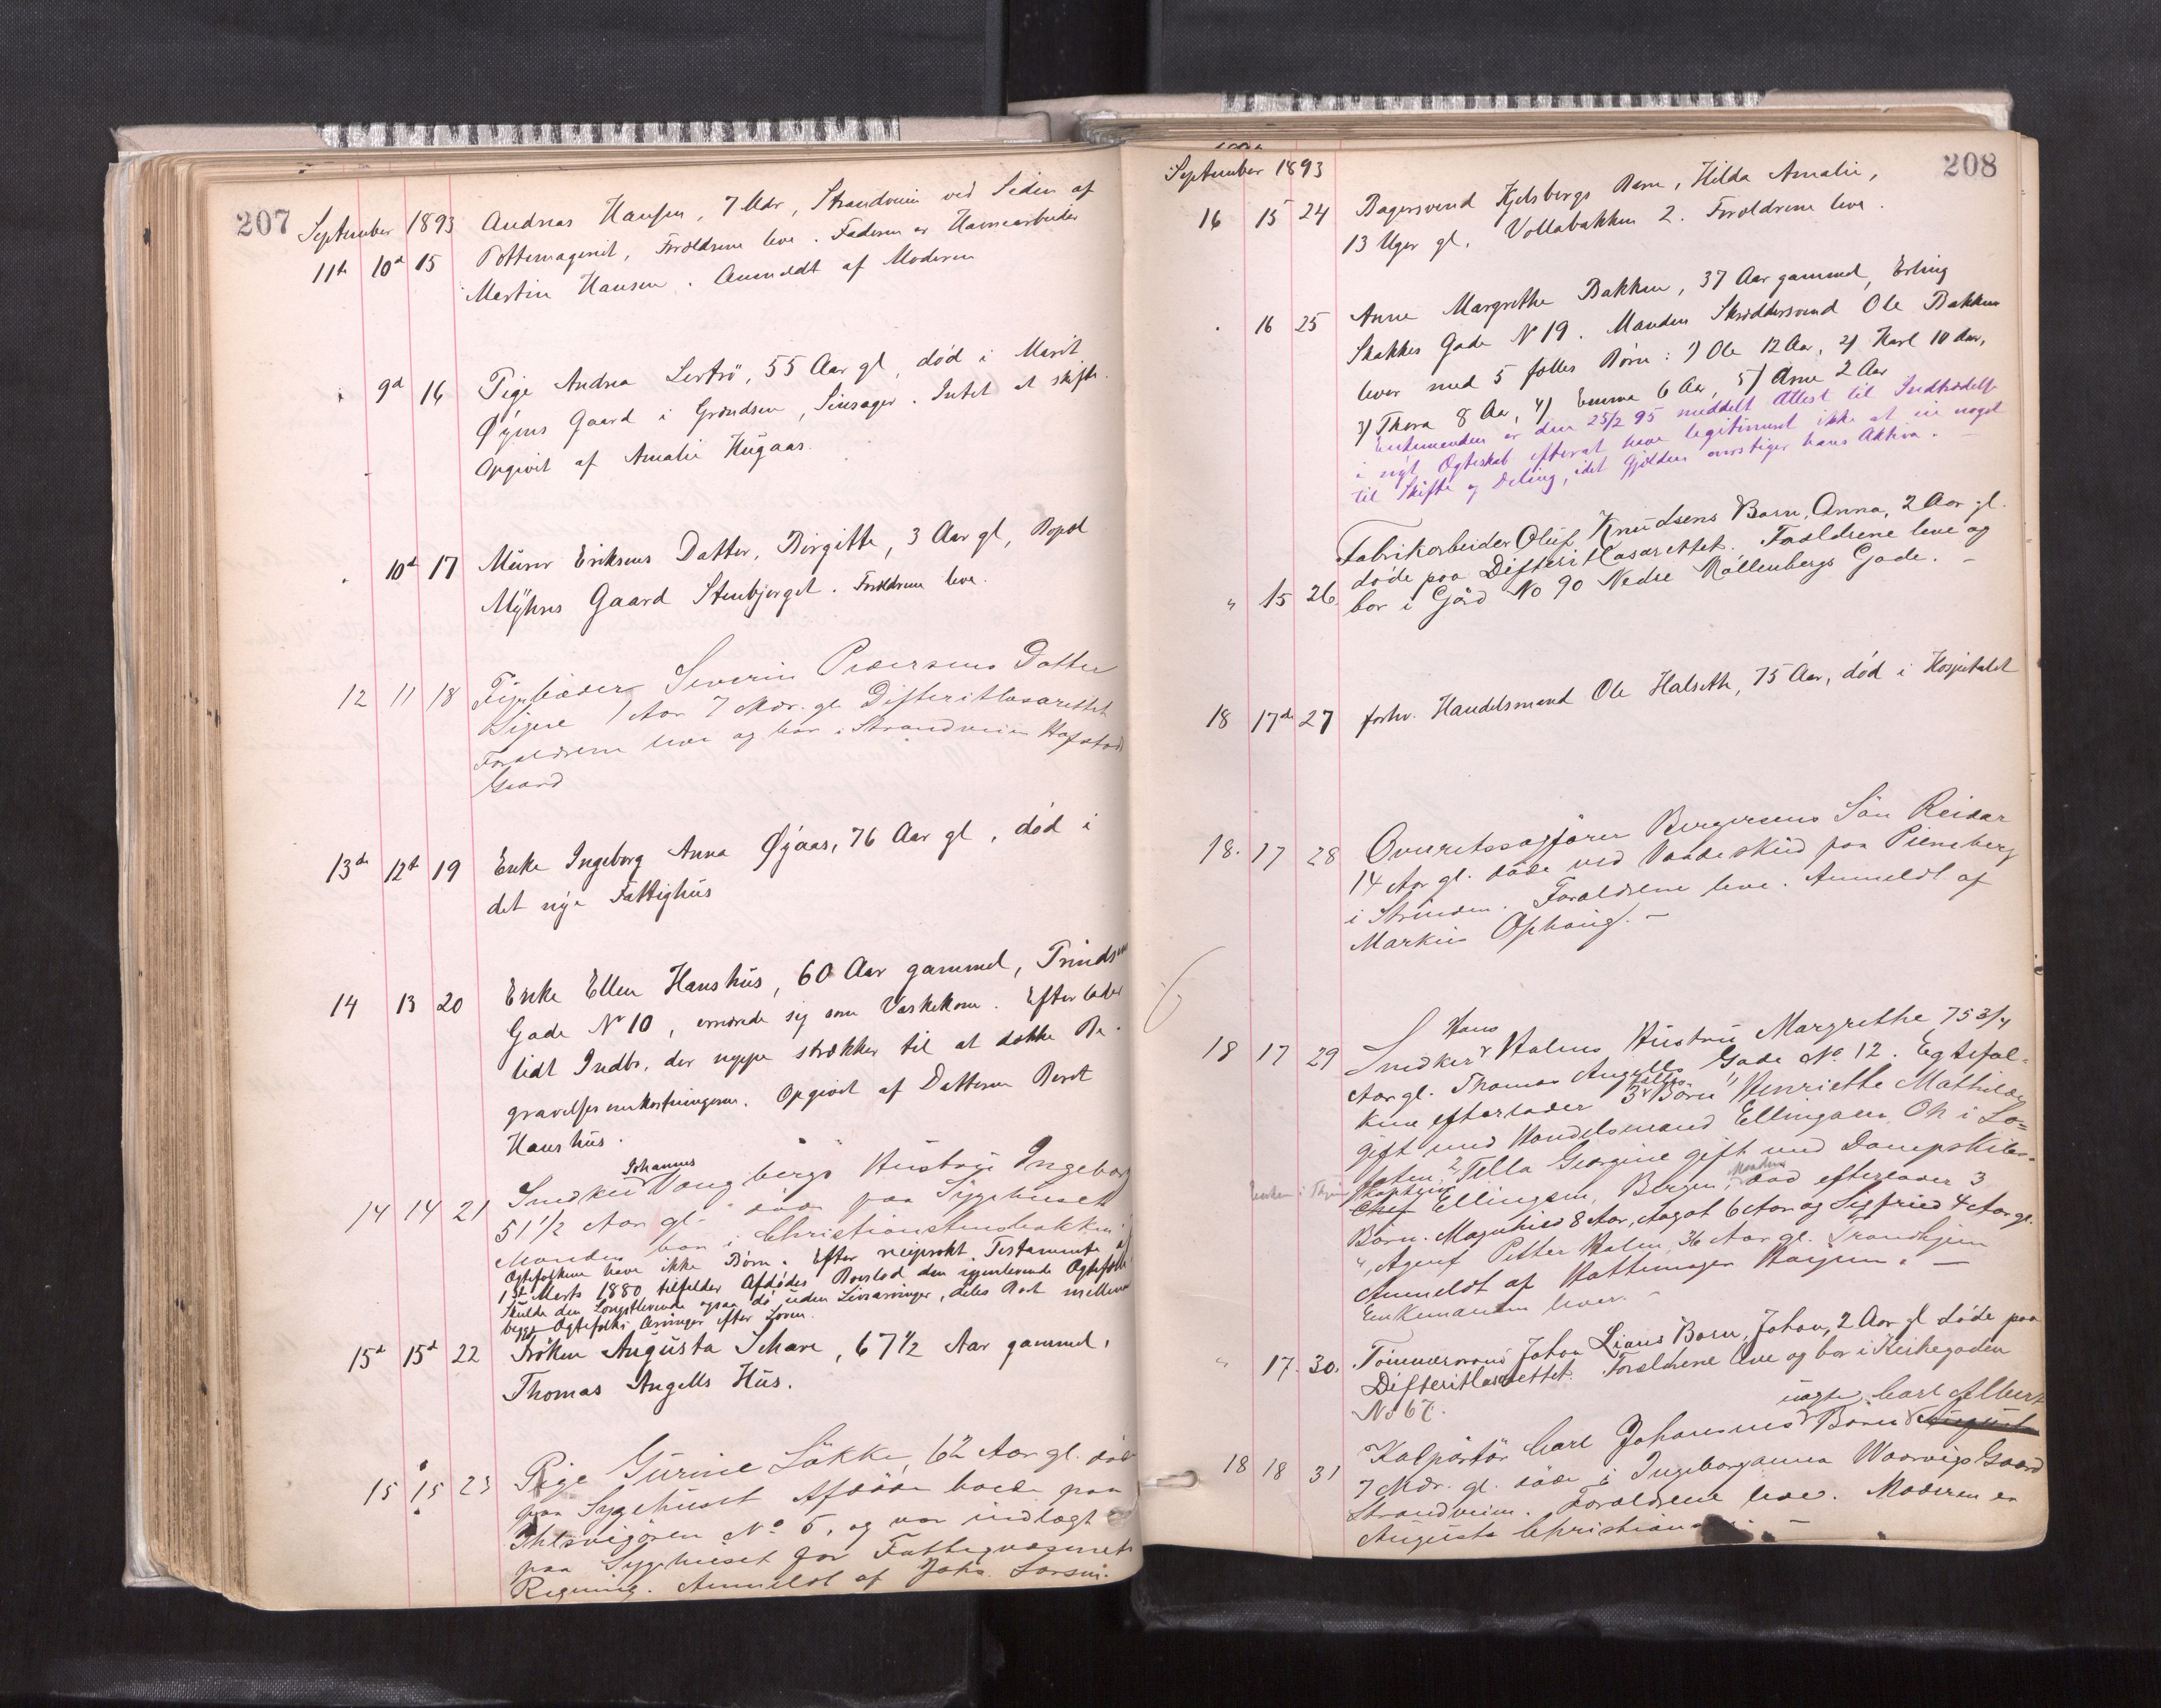 207
September 1893 Andreas Hansen, 7 Mdr, Strandveien ved Siden af
11te 10de 15 Pottemageriet, Forældrene leve. Faderen er Havnearbeider
Martin Hansen. Anmeldt af Moderen
" 9de 16 Pige Andrea Lertrö, 55 Aar gl, død i Marit
Øÿens Gaard i Grændsen, Sinsager. Intet at skifte.
Opgivet af Amalie Hügaas.
" 10de 17 Mürer Eriksens Datter, Birgitte, 3 Aar gl, Bopæl
Mÿhres Gaard Stenbjerget. Forældrene leve.
12 11 18 Severin Pedersens Datter
Signe 1 Aar 7 Mdr. gl. Difteritlasarettet
Forældrene leve og bor i Strandveien Hafstad
Gaard
13de 12te 19 Enke Ingeborg Anna Øÿaas, 76 Aar gl, død i
det nÿe Fattighüs
14 13 20 Enke Ellen Hanshüs, 60 Aar gammel, Prindsens
Gade No 10, ernærede sig som Vaskekone. Efterlader
lidt Indbo, der neppe strækker til at dække Be-
gravelsesomkostningerne. Opgivet af Datteren Beret
Hanshüs.
14 14 21 Snedker Johannes Vangbergs Hüstrü Ingeborg
51 1/2 Aar gl. døde paa Sÿgehüset
Manden bor i Christianstensbakken
Ægtefolkene have ikke Børn. Efter reciprokt Testamente af
1ste Marts 1880 tilfalder Afdødes Boeslod den gjenlevende Ægtefælle.
Skulde den Længstlevende ogsaa dø üden Livsarvinger, deles Boet mellem
begge Ægtefolks Arvinger efter Loven.
15de 15de 22 Frøken Aügüsta Schave, 67 1/2 Aar gammel,
Thomas Angells Hüs.
15 15 23 Pige Gürine Løkke, 62 Aar gl. døde
paa Sygehüset Afdøde boede paa
Ihlsvigøren No 5, og var indlagt
paa Sygehüset for Fattigvæsenets
Regning. Anmeldt af Johs. Larsen.
208
September 1893
16 15 24 Bagersvend Kjelsbergs Barn, Hilda Amalie,
13 Uger gl. Vollabakken 2. Forældrene leve.
" 16 25 Anne Margrethe Bakken, 37 Aar gammel, Erling
Skakkes Gade No 19. Manden Skræddersvend Ole Bakken
lever med 5 fælles Børn: 1) Ole 12 Aar, 2) Karl 10 Aar,
3) Thora 8 Aar, 4) Emma 6 Aar, 5) Arne 2 Aar
Enkemanden er den 25/2 95 meddelt Attest til Indtrædelse
i nyt Ægteskab efterat have legitimeret ikke at eie noget
til Skifte og Deling, idet Gjælden overstiger hans Aktiva. –
Fabrikarbeider Olüf Knüdsens Barn, Anna, 2 Aar gl.
døde paa Difteritlasarettet. Forældrene leve og
" 15 26 bor i Gård No 90 Nedre Møllenbergs Gade. –
18 17de 27 forhv. Handelsmand Ole Halseth, 75 Aar, død i Hospitalet
18. 17 28 Overretssagfører Bergersens Søn Reidar
14 Aar gl. døde ved Vaadesküd paa Pieneberg
i Strinden. Forældrene leve. Anmeldt af
Marküs Ophaüg. –
18 17 29 Snedker Hans Halms Hüstrü Margrethe 75 3/4
Aar gl. Thomas Angells Gade No 12. Egtefol-
kene efterlader 3 fælles Børn 1, Henriette Mathilde
gift med Handelsmand Ellingsen Oh i Lo-
foten, 2, Tella Georgine gift med Dampskibs-
Enken i Thjem Kaptein Chef Ellingsen, Bergen, Manden død efterlader 3
Børn. Magnhild 8 Aar, Aagot 6 Aar og Sigfried 4 Aar gl.
", Agent Petter Halm, 36 Aar gl. Trondhjem
Anmeldt af Hattemager Hagen. –
Enkemanden lever. –
" 17. 30. Tømmermand Johan Lians Barn, Johan, 2 Aar gl døde paa
Difteritlasarettet. Forældrene leve og bor i Kirkegaden
No 67.
18 18 31 Kolportør Carl Johansens üægte Barn Carl Albert
7 Mdr. gl. døde i Ingeborganna Waarvigs Gaard
Strandveien. Forældrene leve. Moderen er
Aügüsta